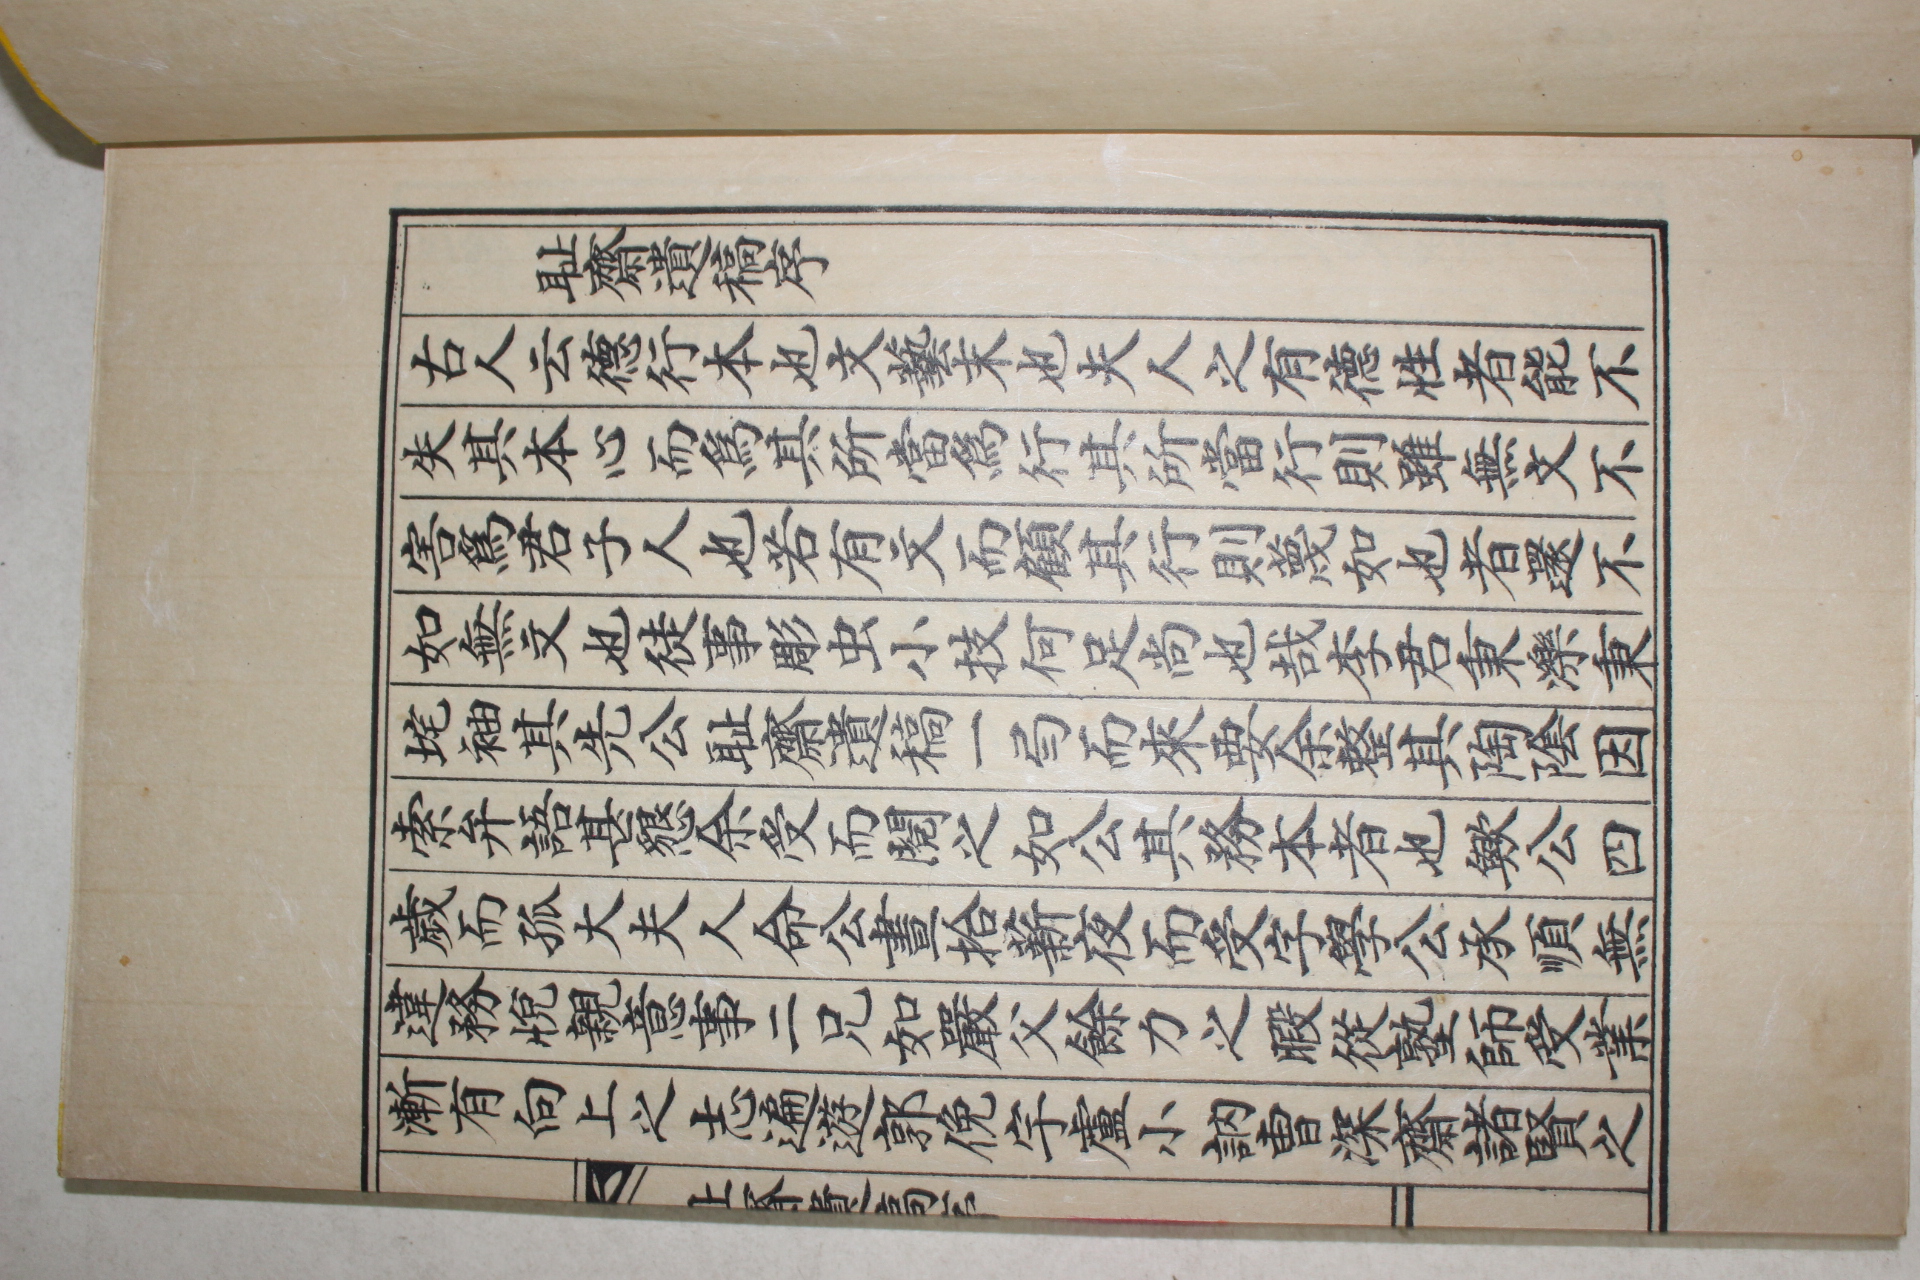 耻齋遺稿序
古人云德行本也文藝末也夫人之有德性者能不
失其本心而爲其所當爲行其所當行則雖無文不
害爲君子人也若有文而顧其行則蔑如也者還不
如無文也徒事彫虫小技何足尚也哉李君秉濼秉
垞袖其先公耻齋遺稿一弓而來要余整其陶陰因
索弁語甚懇余受而閱之如公其務本者也歟公四
歲而孤大夫人命公晝拾薪夜而受字學公承順無
違務悅親意事二兄如嚴父餘力之暇從塾師受業
漸有向上之志遍遊郭俛宇盧小訥曺深齋諸賢之
耻齋遺稿序